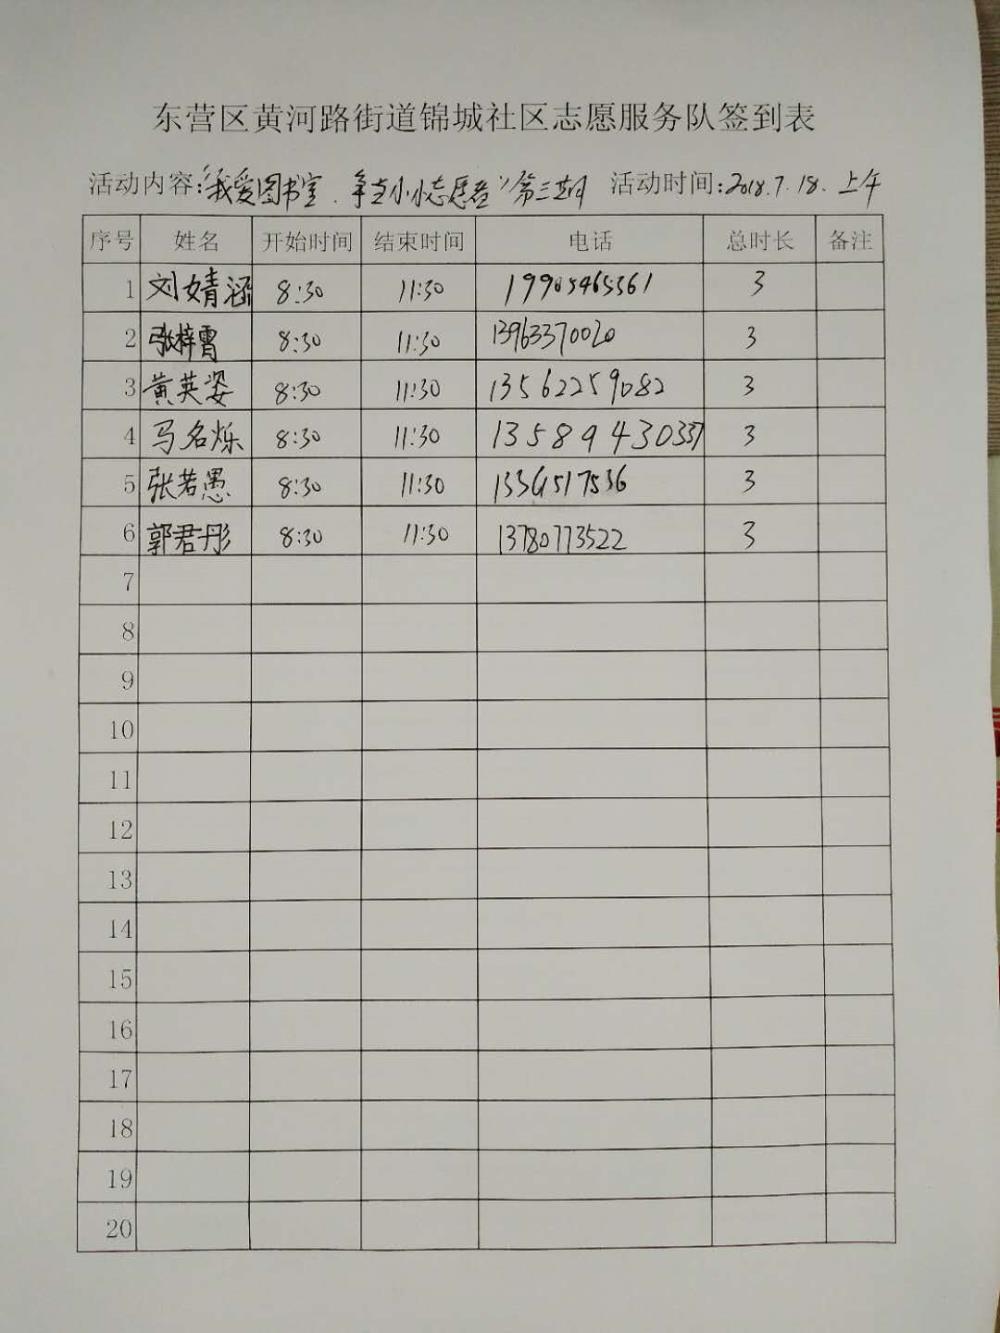 东营区黄河路街道锦城社区志愿服务队签到表
活动内容:“我爱图书室.争当小小志愿者”第三期 活动时间:2018.7.18.上午
序号 姓名 开始时间 结束时间 电话 总时长 备注
1 刘婧涵 8:30 11:30 19905465561 3
2 张梓霄 8:30 11:30 13963370020 3
3 黄英姿 8:30 11:30 13562259082 3
4 马名烁 8:30 11:30 13589430337 3
5 张若愚 8:30 11:30 3
6 郭君彤 8:30 11:30 13780773522 3
7
8
9
10
11
12
13
14
15
16
17
18
19
20